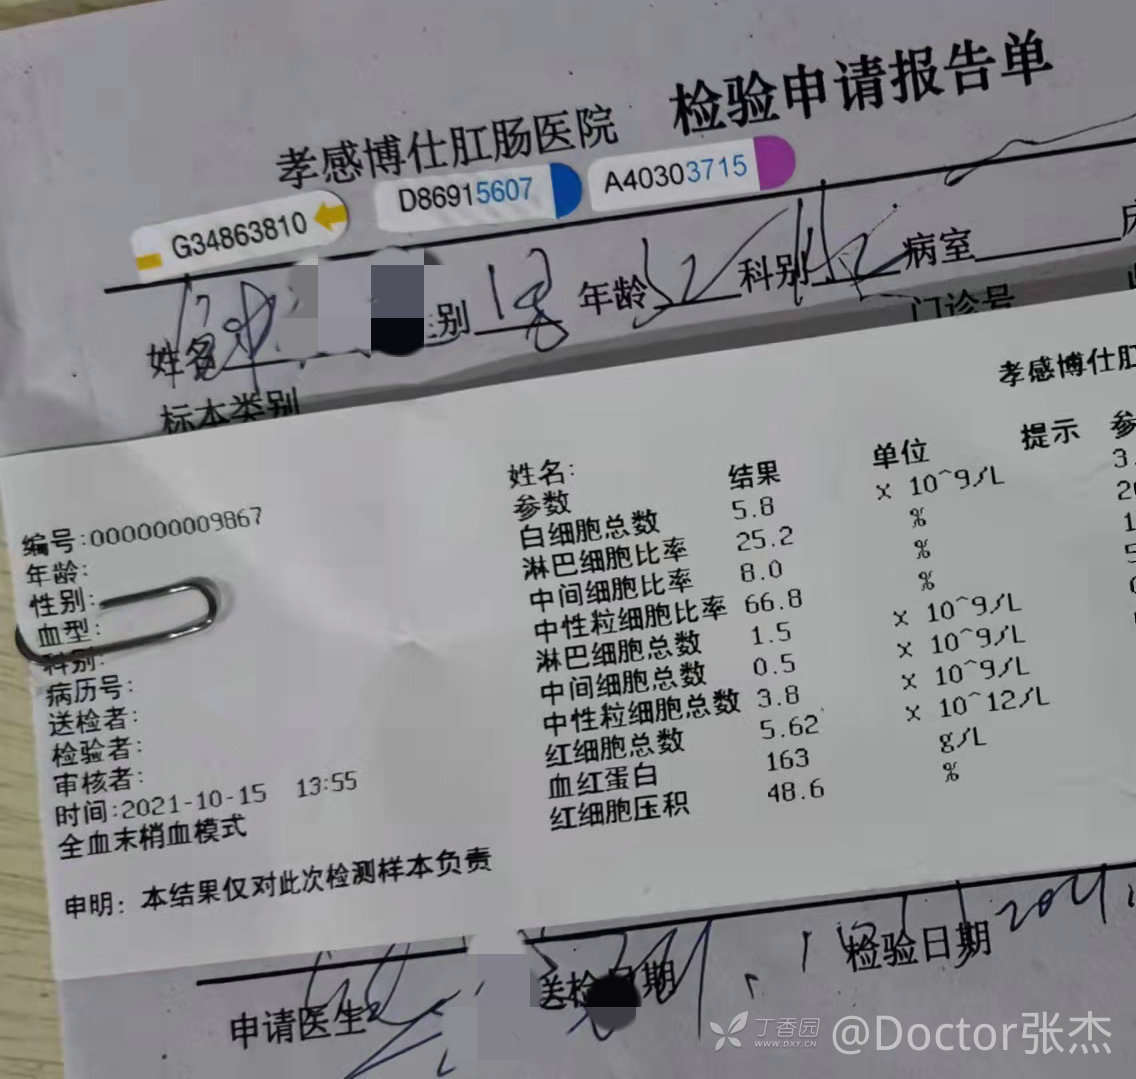 孝感博仕肛肠医院 检验申请报告单
G34863810 D86915607 A40303715
姓名 性别 年龄 52 科别 病室
标本类别 门诊号
孝感博仕肛
编号:000000009867
年龄:
性别:
血型:
科别:
病历号:
送检者:
检验者:
审核者:
时间:2021-10-15 13:55
全血末梢血模式
申明: 本结果仅对此次检测样本负责
姓名:
参数 结果 单位 提示
白细胞总数 5.8 x 10^9/L
淋巴细胞比率 25.2 %
中间细胞比率 8.0 %
中性粒细胞比率 66.8 %
淋巴细胞总数 1.5 x 10^9/L
中间细胞总数 0.5 x 10^9/L
中性粒细胞总数 3.8 x 10^9/L
红细胞总数 5.62 x 10^12/L
血红蛋白 163 g/L
红细胞压积 48.6 %
申请医生 送检日期 检验日期
丁香园 @Doctor张杰
WWW.DXY.CN